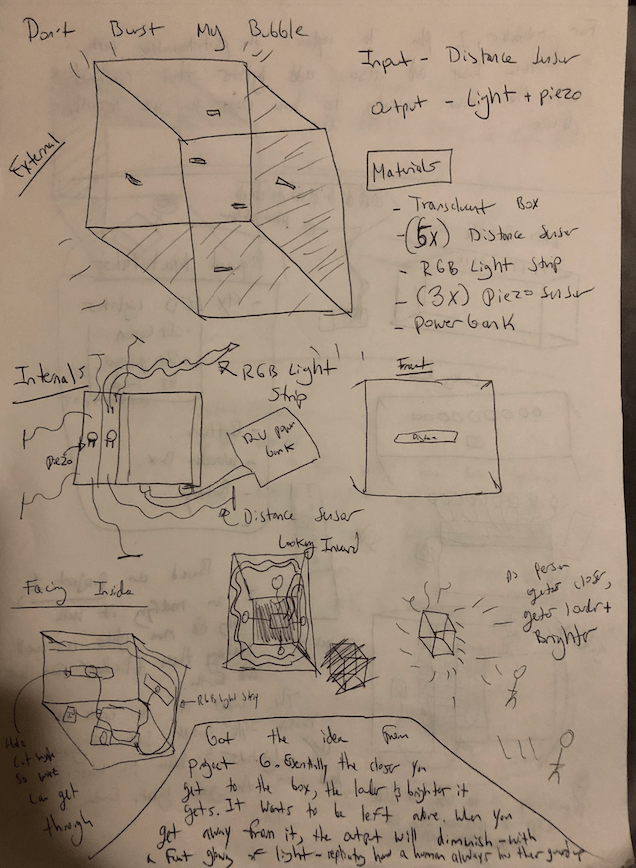 Don't Burst My Bubble
Input - Distance Sensor
Output - Light + piezo
External
Materials
- Translucent Box
- (5x) Distance Sensor
- RGB Light Strip
- (3x) Piezo Sensor
- Powerbank
Internals
RGB Light
Strip
Front
Distance
piezo
power
bank
Distance Sensor
Looking Inward
Facing Inside
As person
gets closer,
gets louder +
Brighter
RGB Light Strip
Hole
Cut
So
Can get
through
Got the idea from
project 6. Essentially the closer you
get to the box, the louder & brighter it
gets. It wants to be left alone. When you
get away from it, the output will diminish - with
a faint glowing of light - replicating how a human always has their guard up